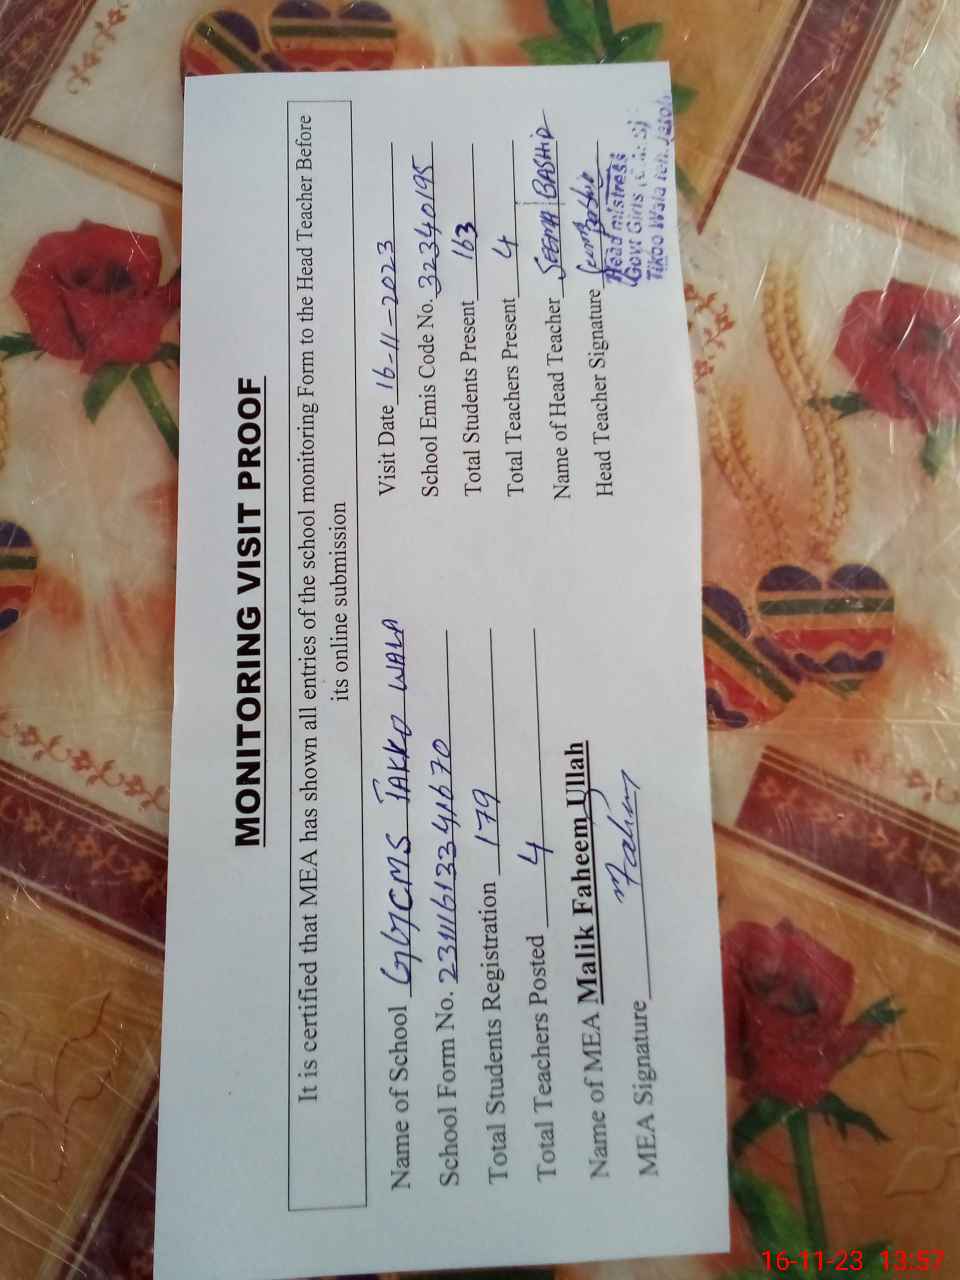 MONITORING VISIT PROOF
It is certified that MEA has shown all entries of the school monitoring Form to the Head Teacher Before
its online submission
Name of School GGCMS TAKKO WALA
Visit Date 16-11-2023
School Form No.
School Emis Code No. 32340195
Total Students Registration 179
Total Students Present 163
Total Teachers Posted 4
Total Teachers Present 4
Name of MEA Malik Faheem Ullah
Name of Head Teacher SEEMA BASHIR
MEA Signature Faheem
Head Teacher Signature
Headmistress
Govt Girls
Tikoo Wala Teh. Jatoi
16-11-23 13:57